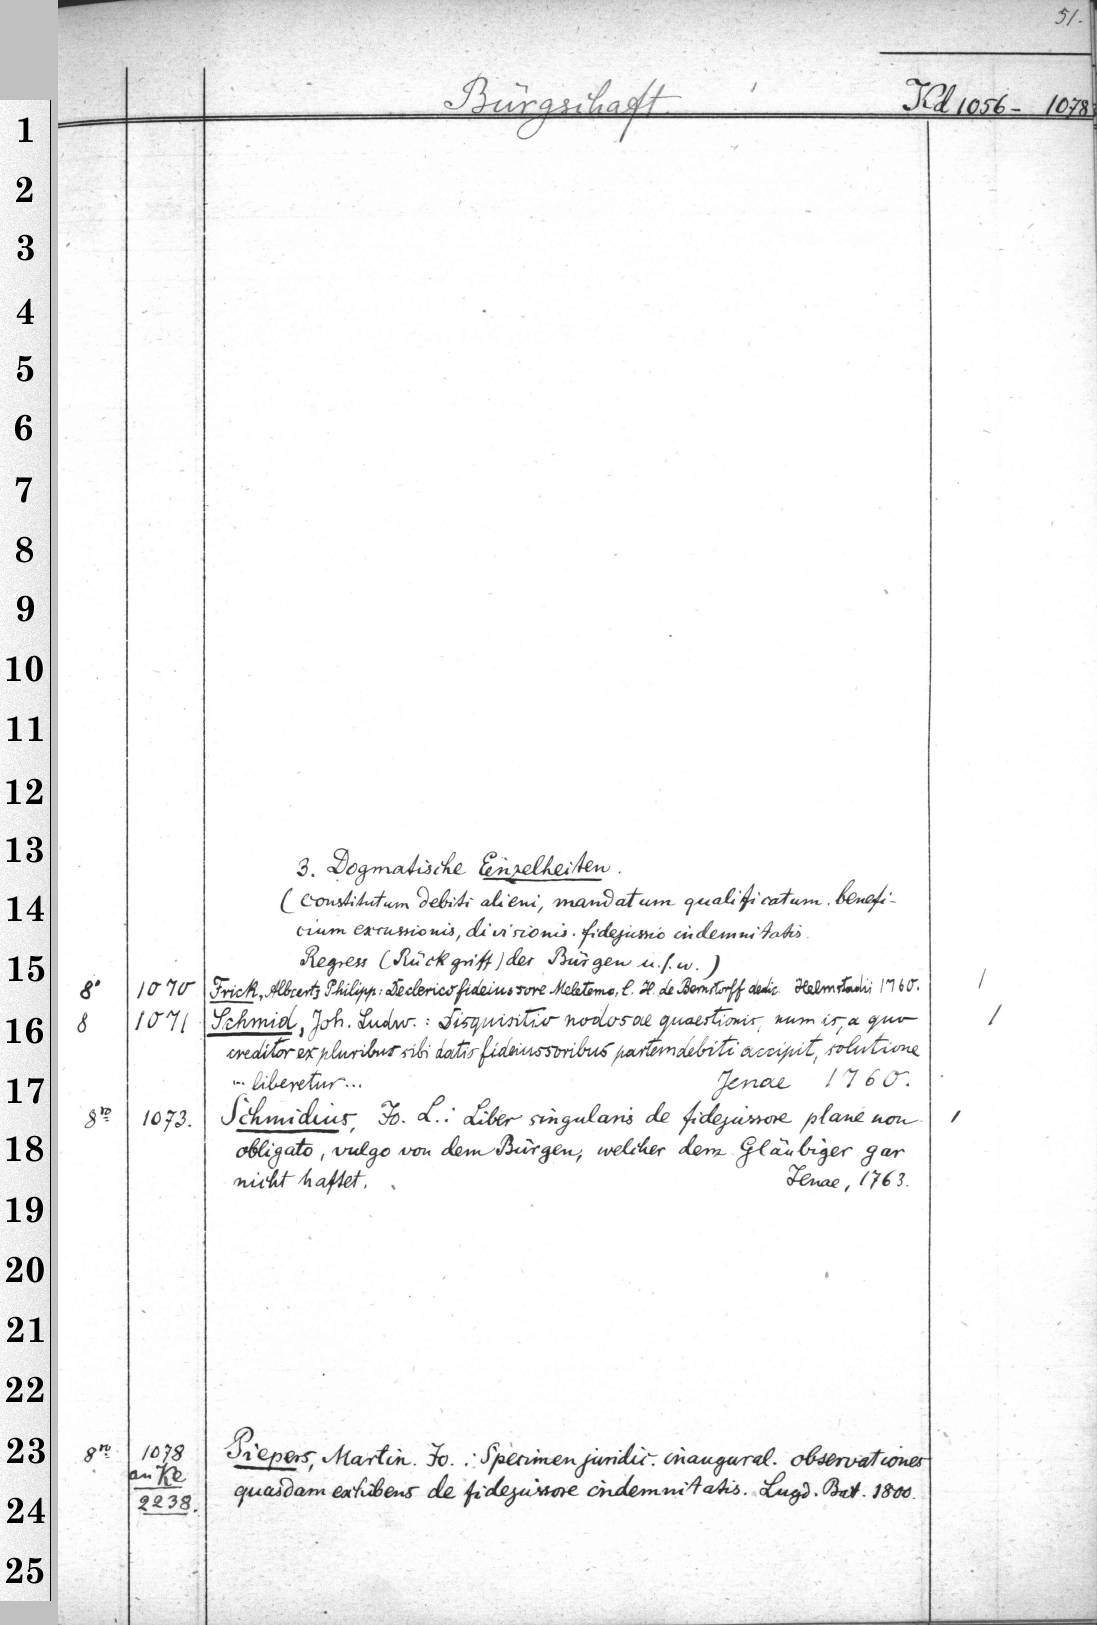 51.
Bürgschaft. Kd 1056 - 1078
1
2
3
4
5
6
7
8
9
10
11
12
13
3. Dogmatische Einzelheiten.
14
(constitutum debiti alieni, mandatum qualificatum. benefi-
cium excussionis, divisionis. fidejussio indemnitatis.
15
Regress (Rückgriff) des Bürgen u.s.w.)
8° 1070 Frick, Albert Philipp: De clerico fideiussore Meletema, C. H. de Bernstorff dedic. Helmstadii 1760. 1
16
8 1071 Schmid, Joh. Ludw.: Disquisitio nodosae quaestionis, num is, a quo 1
creditor ex pluribus sibi datis fideiussoribus partem debiti accipit, solutione
17
... liberetur... Jenae 1760.
8ro 1073. Schmidius, Jo. L.: Liber singularis de fidejussore plane non 1
18
obligato, vulgo von dem Bürgen, welcher dem Gläubiger gar
nicht haftet. Jenae, 1763.
19
20
21
22
23
8ro 1078 Piepers, Martin. Jo.: Specimen juridic. inaugural. observationes
an Ke
quasdam exhibens de fidejussore indemnitatis. Lugd. Bat. 1800.
2238.
24
25